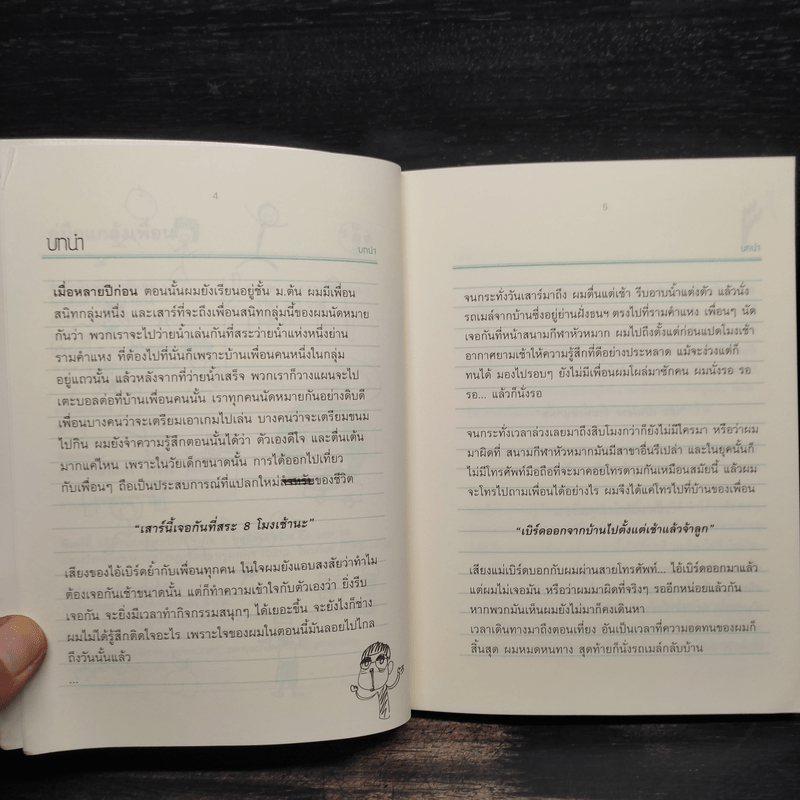 4
บทนำ
บทนำ
เมื่อหลายปีก่อน ตอนนั้นผมยังเรียนอยู่ชั้น ม.ต้น ผมมีเพื่อน
สนิทกลุ่มหนึ่ง และเสาร์ที่จะถึงเพื่อนสนิทกลุ่มนี้ของผมนัดหมาย
กันว่า พวกเราจะไปว่ายน้ำเล่นกันที่สระว่ายน้ำแห่งหนึ่งย่าน
รามคำแหง ที่ต้องไปที่นั่นก็เพราะบ้านเพื่อนคนหนึ่งในกลุ่ม
อยู่แถวนั้น แล้วหลังจากที่ว่ายน้ำเสร็จ พวกเราก็วางแผนจะไป
เตะบอลต่อที่บ้านเพื่อนคนนั้น เราทุกคนนัดหมายกันอย่างดิบดี
เพื่อนบางคนว่าจะเตรียมเอาเกมไปเล่น บางคนว่าจะเตรียมขนม
ไปกิน ผมยังจำความรู้สึกตอนนั้นได้ว่า ตัวเองดีใจ และตื่นเต้น
มากแค่ไหน เพราะในวัยเด็กขนาดนั้น การได้ออกไปเที่ยว
กับเพื่อนๆ ถือเป็นประสบการณ์ที่แปลกใหม่สำหรับของชีวิต
“เสาร์นี้เจอกันที่สระ 8 โมงเช้านะ”
เสียงของไอ้เบิร์ดย้ำกับเพื่อนทุกคน ในใจผมยังแอบสงสัยว่าทำไม
ต้องเจอกันเช้าขนาดนั้น แต่ก็ทำความเข้าใจกับตัวเองว่า ยิ่งรีบ
เจอกัน จะยิ่งมีเวลาทำกิจกรรมสนุกๆ ได้เยอะขึ้น จะยังไงก็ช่าง
ผมไม่ได้รู้สึกติดใจอะไร เพราะใจของผมในตอนนี้มันลอยไปไกล
ถึงวันนั้นแล้ว
...
5
บทนำ
จนกระทั่งวันเสาร์มาถึง ผมตื่นแต่เช้า รีบอาบน้ำแต่งตัว แล้วนั่ง
รถเมล์จากบ้านซึ่งอยู่ย่านฝั่งธนฯ ตรงไปที่รามคำแหง เพื่อนๆ นัด
เจอกันที่หน้าสนามกีฬาหัวหมาก ผมไปถึงตั้งแต่ก่อนแปดโมงเช้า
อากาศยามเช้าให้ความรู้สึกที่ดีอย่างประหลาด แม้จะง่วงแต่ก็
ทนได้ มองไปรอบๆ ยังไม่มีเพื่อนผมโผล่มาซักคน ผมนั่งรอ รอ
รอ... แล้วก็นั่งรอ
จนกระทั่งเวลาล่วงเลยมาถึงสิบโมงกว่าก็ยังไม่มีใครมา หรือว่าผม
มาผิดที่ สนามกีฬาหัวหมากมันมีสาขาอื่นรึเปล่า และในยุคนั้นก็
ไม่มีโทรศัพท์มือถือที่จะมาคอยโทรตามกันเหมือนสมัยนี้ แล้วผม
จะโทรไปถามเพื่อนได้อย่างไร ผมจึงได้แค่โทรไปที่บ้านของเพื่อน
“เบิร์ดออกจากบ้านไปตั้งแต่เช้าแล้วจ้าลูก”
เสียงแม่เบิร์ดบอกกับผมผ่านสายโทรศัพท์... ไอ้เบิร์ดออกมาแล้ว
แต่ผมไม่เจอมัน หรือว่าผมมาผิดที่จริงๆ รออีกหน่อยแล้วกัน
หากพวกมันเห็นผมยังไม่มาก็คงเดินหา
เวลาเดินทางมาถึงตอนเที่ยง อันเป็นเวลาที่ความอดทนของผมก็
สิ้นสุด ผมหมดหนทาง สุดท้ายก็นั่งรถเมล์กลับบ้าน